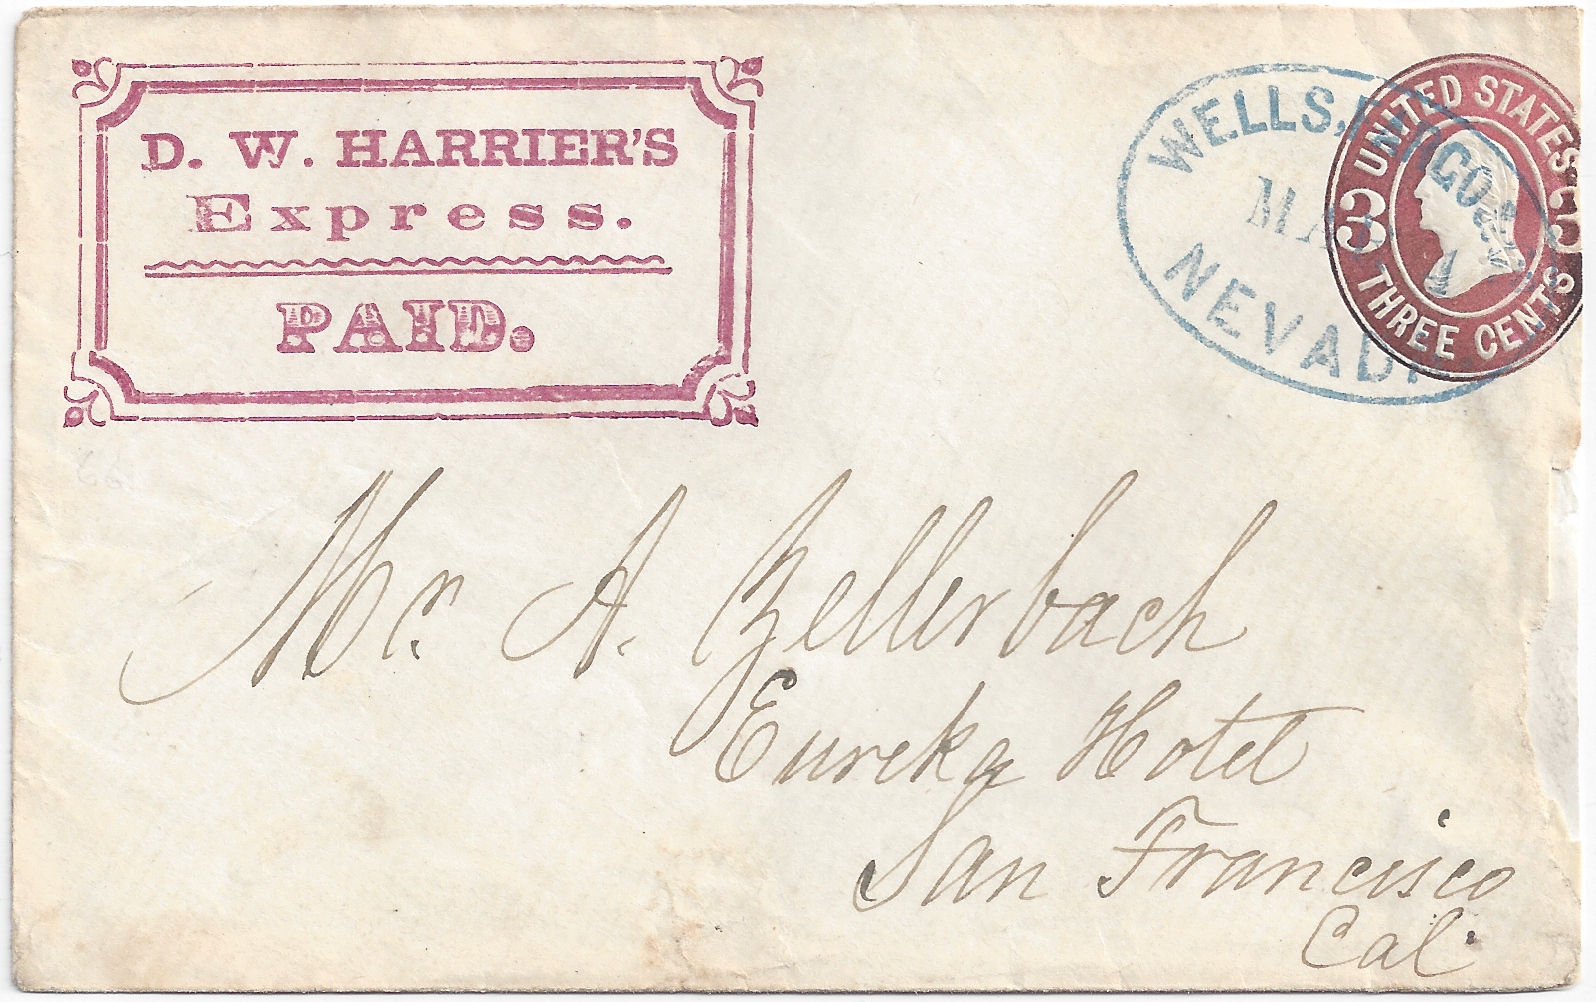 D. W. HARRIER'S
Express.
PAID.
WELLS,
NEVADA
UNITED STATES
3 3
THREE CENTS
Mr. A. Zellerbach
Eureka Hotel
San Francisco
Cal.